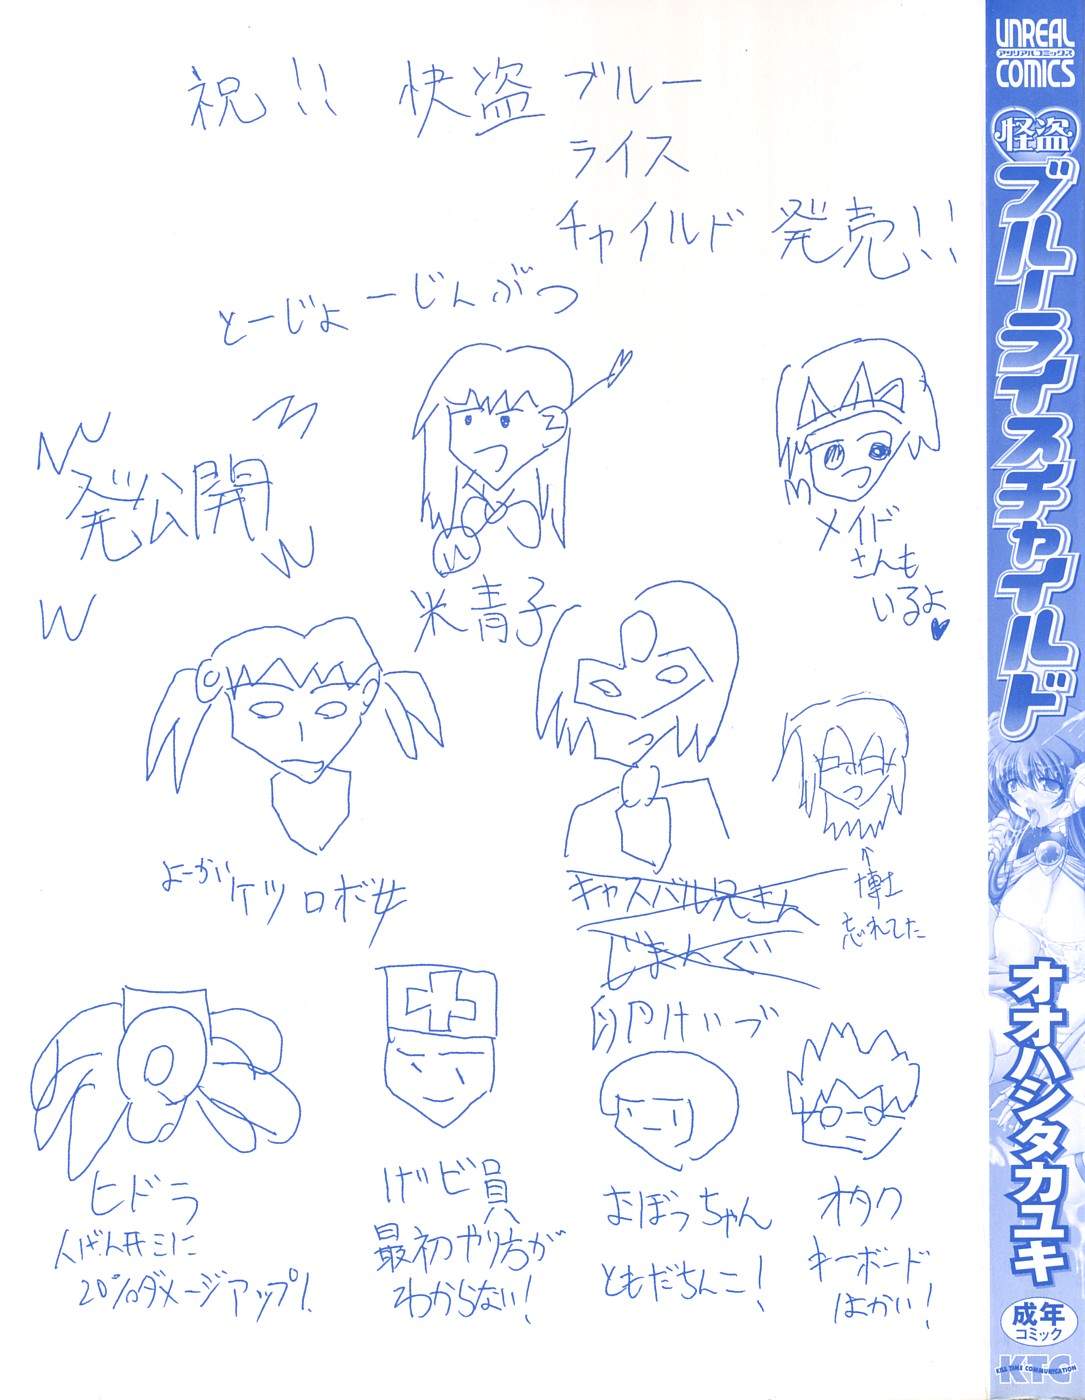 祝!! 快盗ブルー
ライス
チャイルド 発売!!
とーじょーじんぶつ
発公開
米青子
メイド
さんも
いるよ♥
よーかいケツロボ女
キャスバル兄さん
じまんぐ
卵けいブ
↑
博士
忘れてた
ヒドラ
人げん形ミに
20%ダメージアップ!
げビ員
最初やり方が
わからない!
おぼっちゃん
ともだちんこ!
オタク
キーボード
はかい!
UNREAL
アンリアルコミックス
COMICS
怪盗
ブルーライスチャイルド
オオハシタカユキ
成年
コミック
KTC
KILL TIME COMMUNICATION